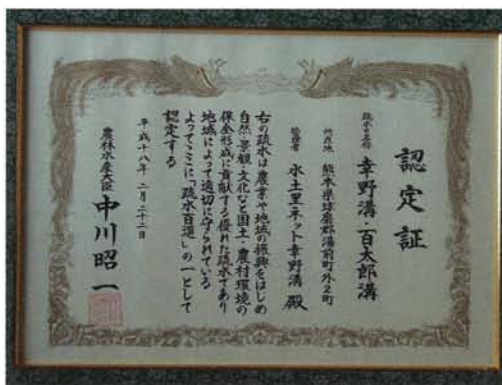 認定証
疏水の名称 幸野溝・百太郎溝
所在地 熊本県球磨郡湯前町外2町
管理者 水土里ネット幸野溝 殿
右の疏水は農業や地域の振興をはじめ
自然・景観・文化など国土・農村環境の
保全形成に貢献する優れた疏水であり
地域によって適切に守られている
よってここに「疏水百選」の一として
認定する
平成十八年 二月二十二日
農林水産大臣 中川昭一